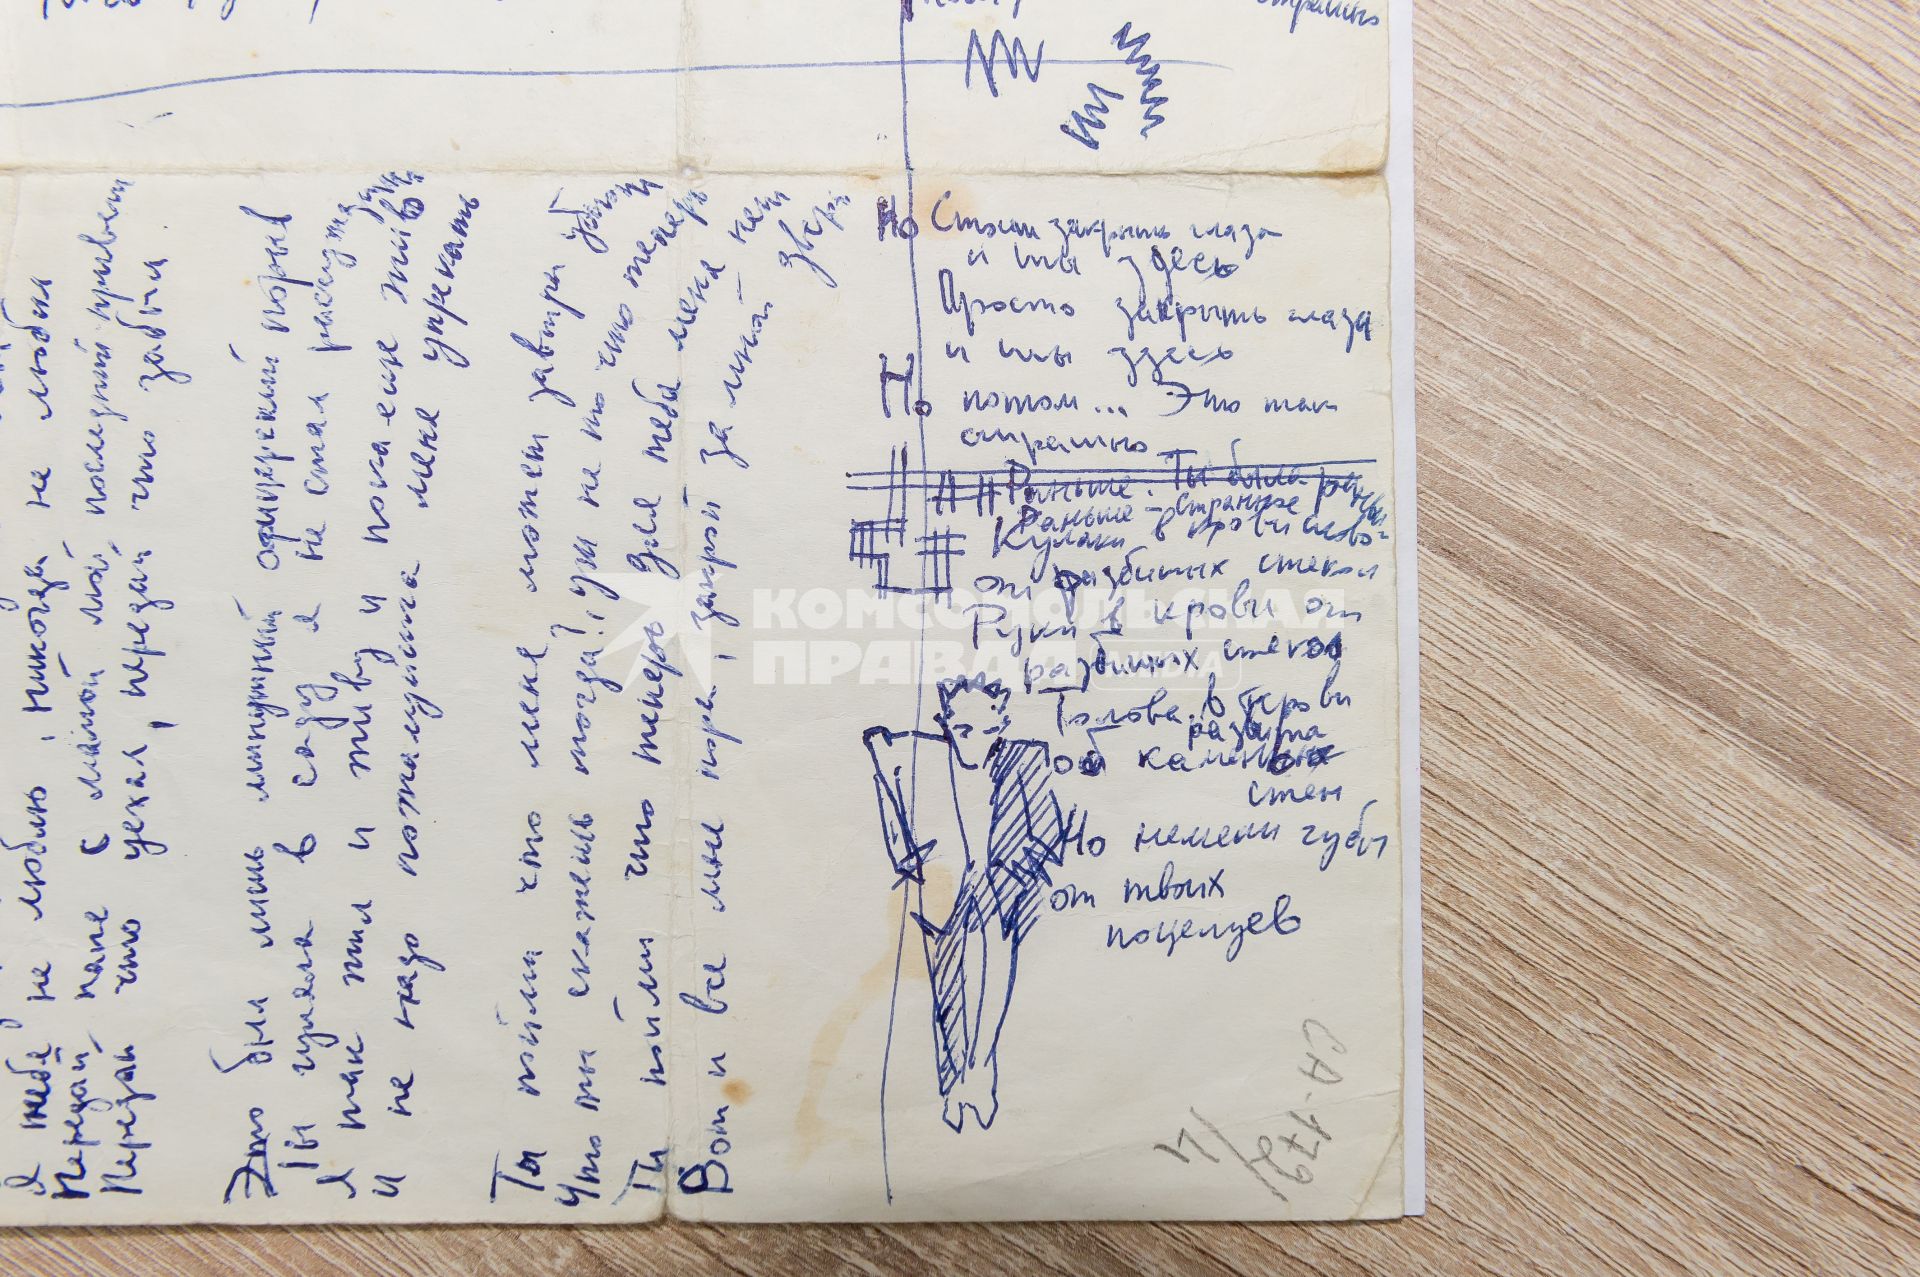 тебя не люблю, никогда не любил
Передай папе с мамой мой последний привет
Передай что уехал, передай что забыл.
Это был лишь минутный офицерский порыв
Ты гуляла в саду я не стал рассуждать
Я так жил и живу и пока еще жив
и не надо пожалуйста меня упрекать
Ты пойми что меня может завтра убьют
Что ты скажешь тогда?, уж не то что теперь
Ты пойми что теперь для тебя меня нет
Вот и все мне пора, закрой за мной дверь
страшно
Но Стоит закрыть глаза
и ты здесь
Просто закрыть глаза
и ты здесь
Но потом... Это так
страшно
Раньше. Ты была
Раньше – странное
Кулаки в крови
от разбитых стекол
Руки в крови от
разбитых стекол
Голова в крови
разбита
от каменных
стен
Но немели губы
от твоих
поцелуев
СА-179
КОМСОМОЛЬСКАЯ
ПРАВДА MEDIA